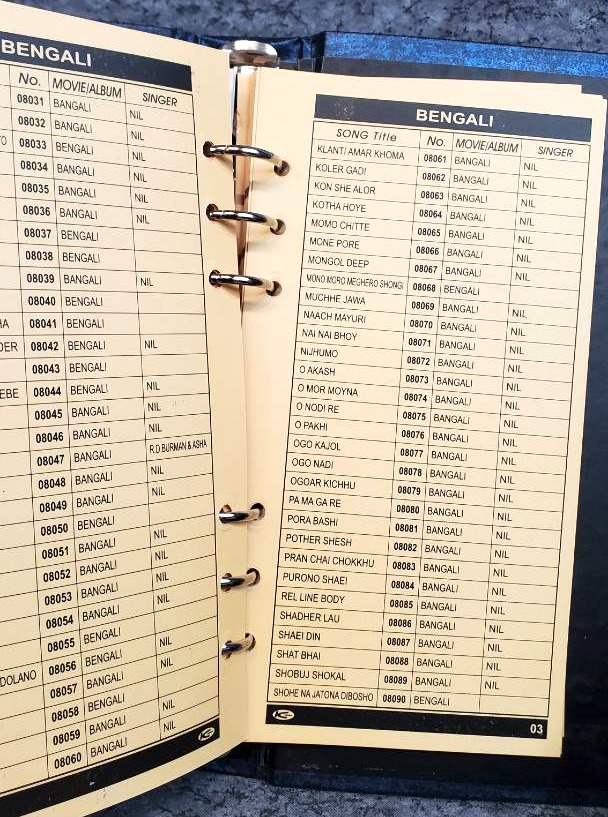 BENGALI
No. MOVIE/ALBUM SINGER
08031 BANGALI NIL
08032 BANGALI NIL
08033 BANGALI NIL
08034 BANGALI NIL
08035 BANGALI NIL
08036 BANGALI NIL
08037 BENGALI
08038 BENGALI
08039 BANGALI NIL
08040 BANGALI
HA 08041 BENGALI
DER 08042 BANGALI NIL
08043 BENGALI
EBE 08044 BANGALI NIL
08045 BANGALI NIL
08046 BANGALI NIL
08047 BANGALI R.D.BURMAN & ASHA
08048 BANGALI NIL
08049 BANGALI NIL
08050 BENGALI
08051 BANGALI NIL
08052 BANGALI NIL
08053 BANGALI NIL
08054 BANGALI
08055 BENGALI
08056 BENGALI NIL
DOLANO 08057 BANGALI NIL
08058 BENGALI
08059 BANGALI NIL
08060 BANGALI NIL
BENGALI
SONG Title No. MOVIE/ALBUM SINGER
KLANTI AMAR KHOMA 08061 BANGALI NIL
KOLER GADI 08062 BANGALI NIL
KON SHE ALOR 08063 BANGALI NIL
KOTHA HOYE 08064 BANGALI NIL
MOMO CHITTE 08065 BANGALI NIL
MONE PORE 08066 BANGALI NIL
MONGOL DEEP 08067 BANGALI NIL
MONO MORO MEGHERO SHONGI 08068 BENGALI
MUCHHE JAWA 08069 BANGALI NIL
NAACH MAYURI 08070 BANGALI NIL
NAI NAI BHOY 08071 BANGALI NIL
NIJHUMO 08072 BANGALI NIL
O AKASH 08073 BANGALI NIL
O MOR MOYNA 08074 BANGALI NIL
O NODI RE 08075 BANGALI NIL
O PAKHI 08076 BANGALI NIL
OGO KAJOL 08077 BANGALI NIL
OGO NADI 08078 BANGALI NIL
OGOAR KICHHU 08079 BANGALI NIL
PA MA GA RE 08080 BANGALI NIL
PORA BASHI 08081 BANGALI NIL
POTHER SHESH 08082 BANGALI NIL
PRAN CHAI CHOKKHU 08083 BANGALI NIL
PURONO SHAEI 08084 BANGALI NIL
REL LINE BODY 08085 BANGALI NIL
SHADHER LAU 08086 BANGALI NIL
SHAEI DIN 08087 BANGALI NIL
SHAT BHAI 08088 BANGALI NIL
SHOBUJ SHOKAL 08089 BANGALI NIL
SHOHE NA JATONA DIBOSHO 08090 BENGALI
03